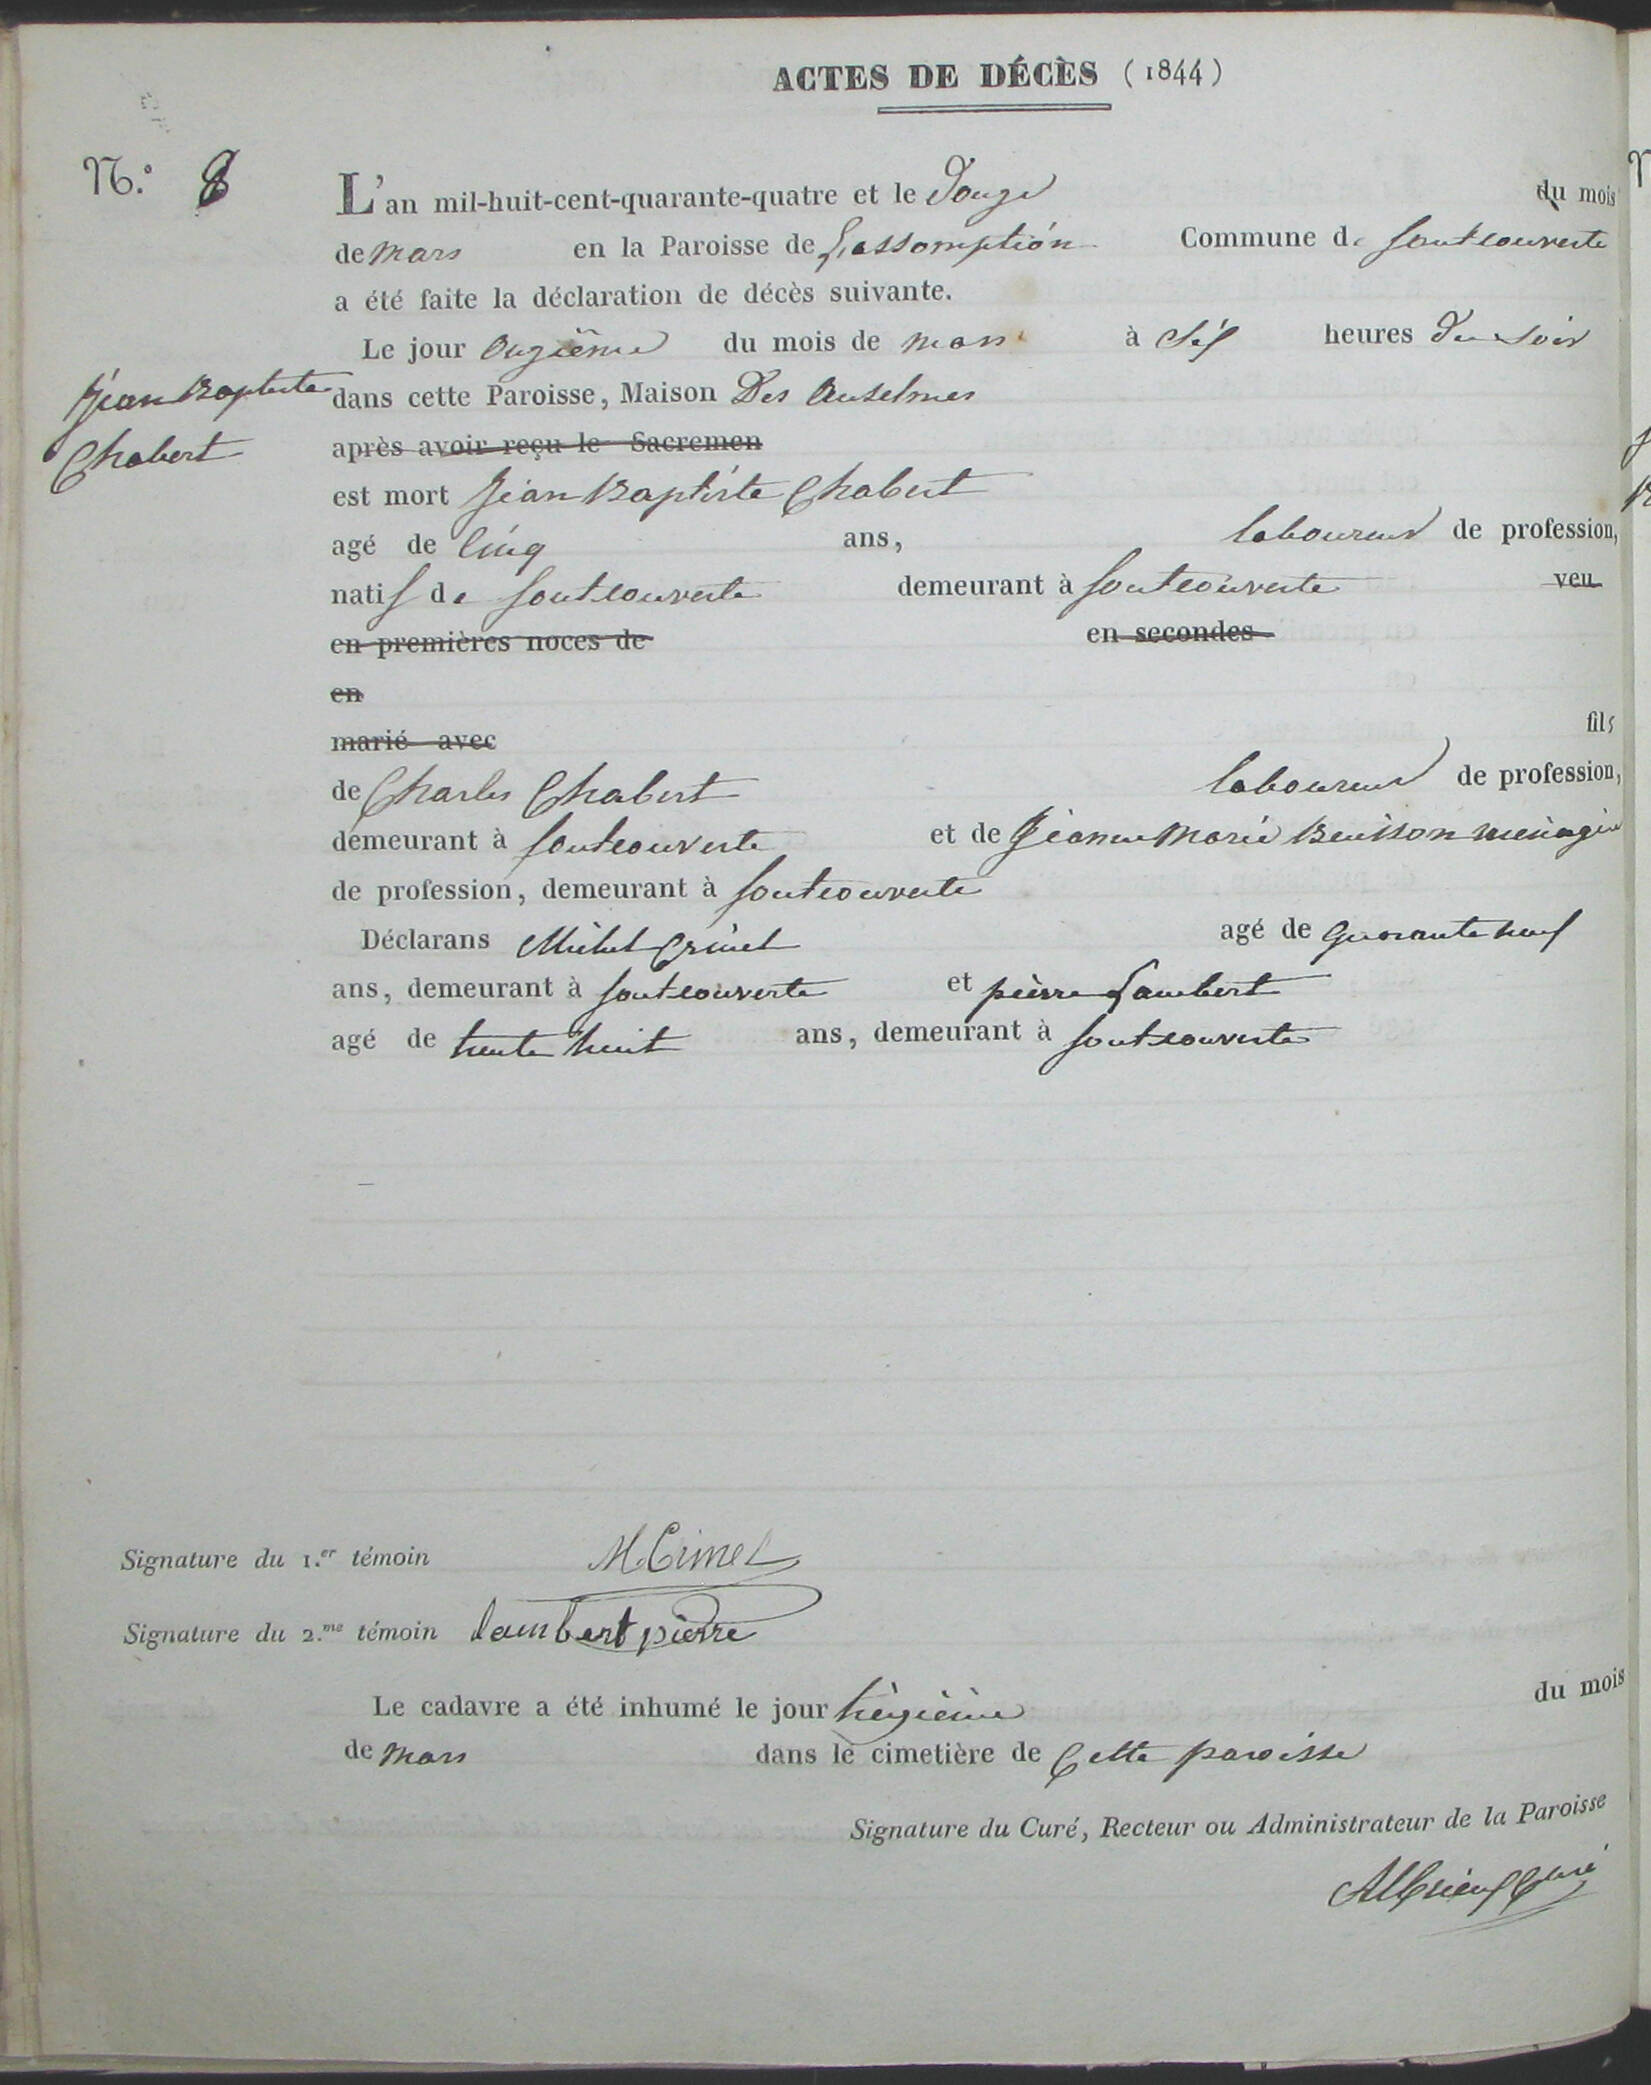 ACTES DE DÉCÈS (1844)
N.º 8
L'an mil-huit-cent-quarante-quatre et le Douze du mois
de mars en la Paroisse de L'assomption Commune de fontcouverte
a été faite la déclaration de décès suivante.
Le jour Onzième du mois de mars à Six heures Du Soir
Jean Baptiste dans cette Paroisse, Maison Des Anselmes
Chabert après avoir reçu le Sacremen
est mort Jean Baptiste Chabert
agé de Cinq ans, laboureur de profession,
natif de fontcouverte demeurant à fontcouverte veu
en premières noces de en secondes
en
marié avec fils
de Charles Chabert laboureur de profession,
demeurant à fontcouverte et de Jeanne Marie Buisson ménagère
de profession, demeurant à fontcouverte
Déclarans Michel agé de Quarante neuf
ans, demeurant à fontcouverte et pierre Lambert
agé de trente huit ans, demeurant à fontcouverte
Signature du 1.er témoin
Signature du 2.me témoin lambert pierre
Le cadavre a été inhumé le jour treizième du mois
de mars dans le cimetière de Cette paroisse
Signature du Curé, Recteur ou Administrateur de la Paroisse
Curé